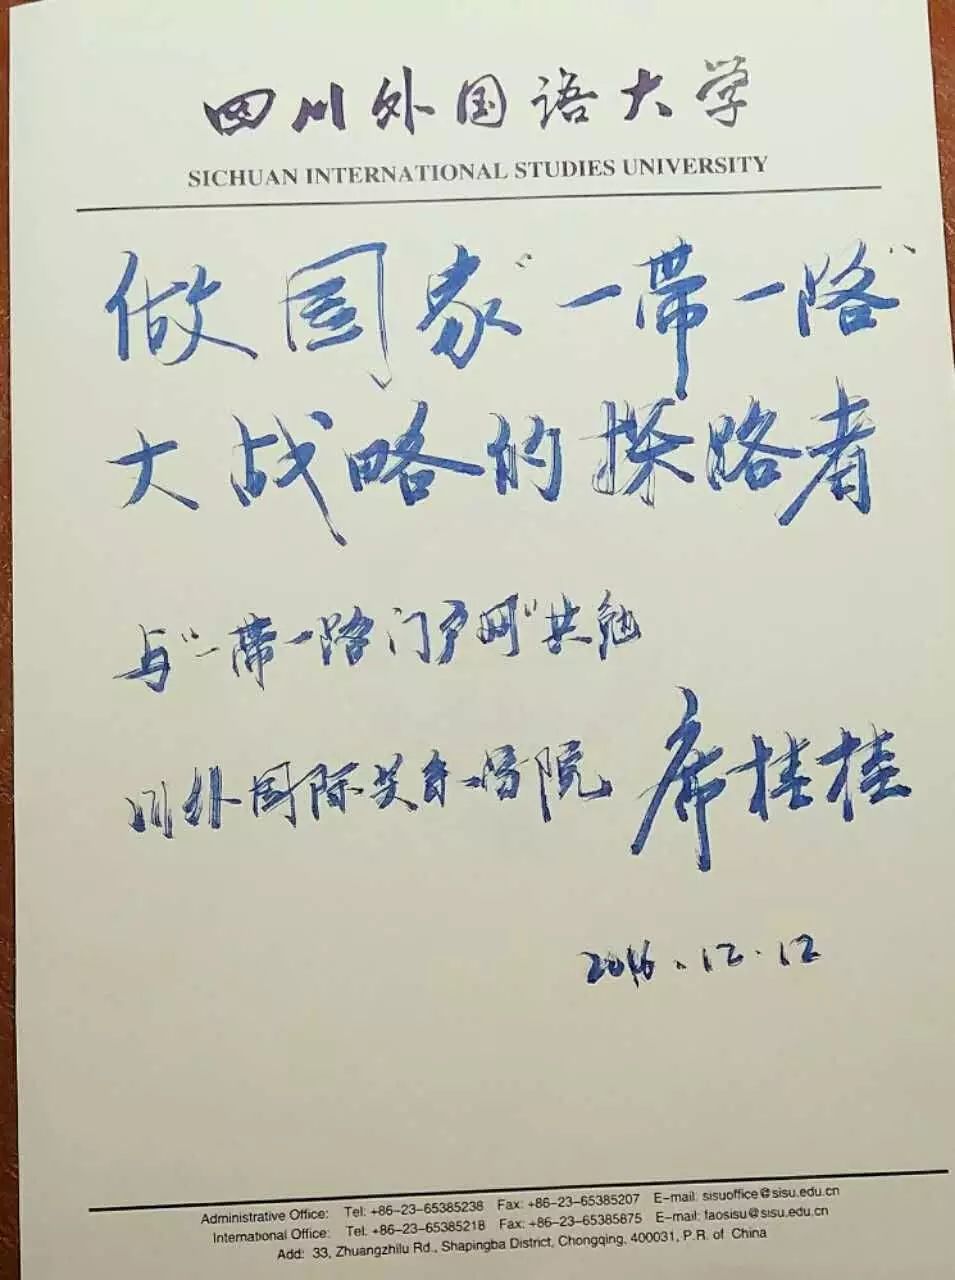 四川外国语大学
SICHUAN INTERNATIONAL STUDIES UNIVERSITY
做国家“一带一路”
大战略的探路者
与“一带一路门户网”共勉
川外国际关系学院 席桂桂
2016.12.12
Administrative Office: Tel: +86-23-65385238 Fax: +86-23-65385207 E-mail: sisuoffice@sisu.edu.cn
International Office: Tel: +86-23-65385218 Fax: +86-23-65385875 E-mail: faosisu@sisu.edu.cn
Add: 33, Zhuangzhilu Rd., Shapingba District, Chongqing, 400031, P.R. of China